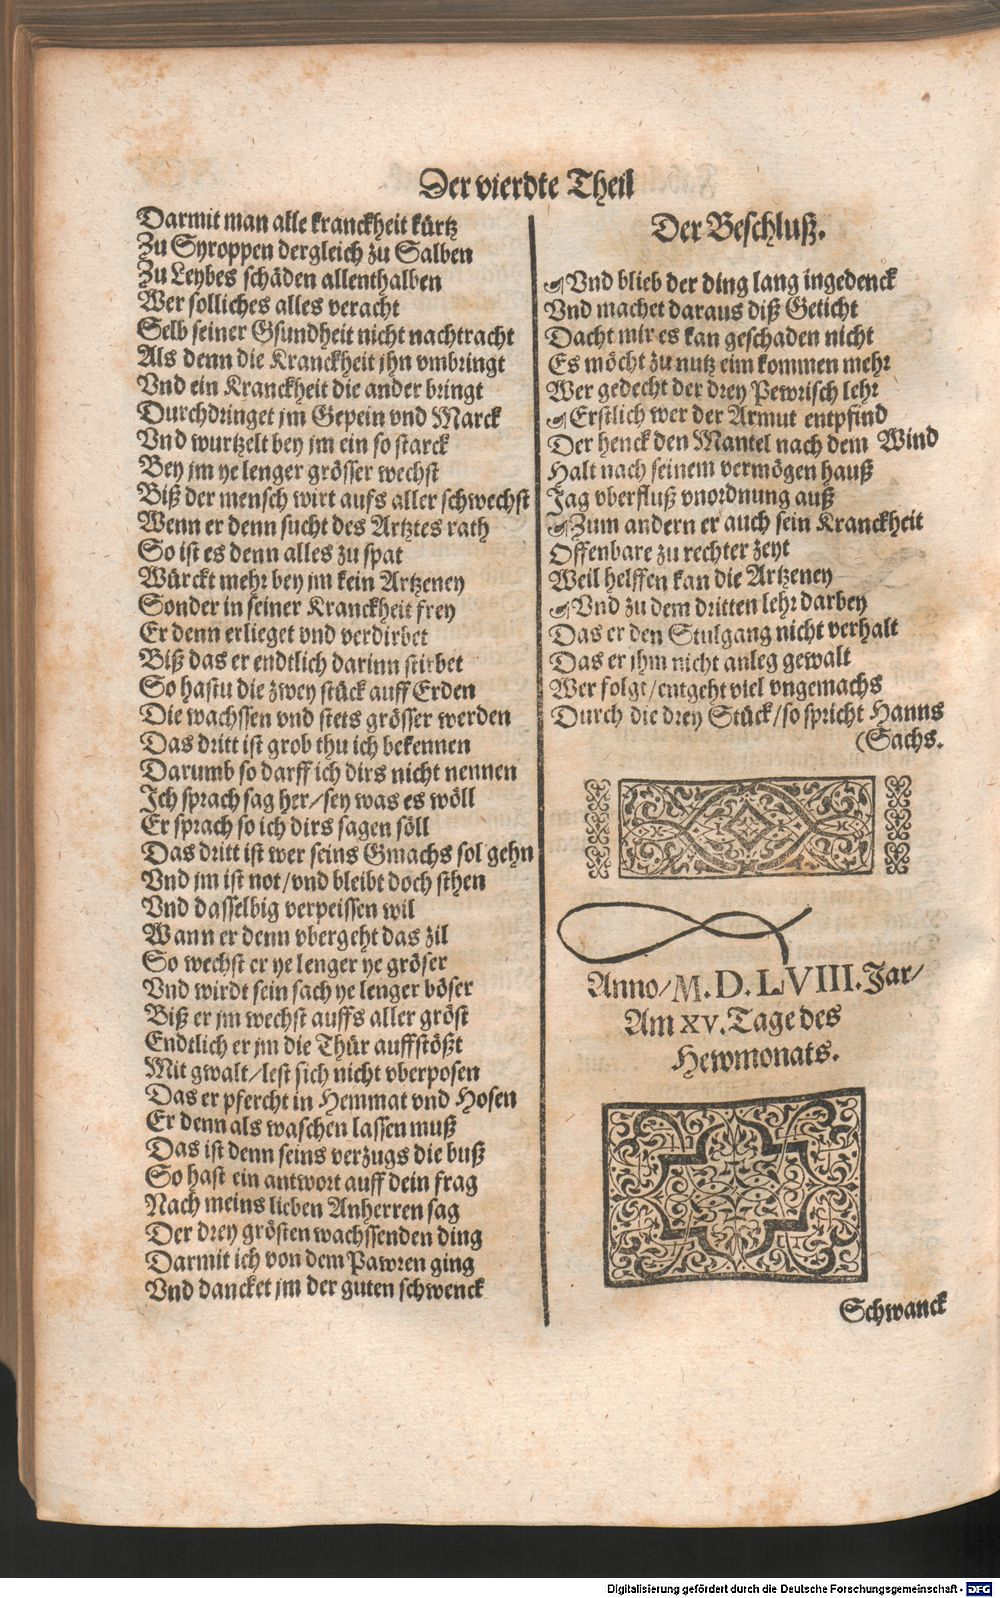 Der vierdte Theil
Darmit man alle kranckheit kürtz
Zu Syroppen dergleich zu Salben
Zu Leybes schäden allenthalben
Wer solliches alles veracht
Selb seiner Gsundheit nicht nachtracht
Als denn die Kranckheit jhn vmbringt
Vnd ein Kranckheit die ander bringt
Durchdringet jm Gepein vnd Marck
Vnd wurtzelt bey jm ein so starck
Bey jm ye lenger grösser wechst
Biß der mensch wirt aufs aller schwechst
Wenn er denn sucht des Artztes rath
So ist es denn alles zu spat
Würckt mehr bey jm kein Artzeney
Sonder in seiner Kranckheit frey
Er denn erlieget vnd verdirbet
Biß das er endtlich darinn stirbet
So hastu die zwey stück auff Erden
Die wachssen vnd stets grösser werden
Das dritt ist grob thu ich bekennen
Darumb so darff ich dirs nicht nennen
Ich sprach sag her/sey was es wöll
Er sprach so ich dirs sagen söll
Das dritt ist wer seins Gmachs sol gehn
Vnd jm ist not/vnd bleibt doch sthen
Vnd dasselbig verpeissen wil
Wann er denn vbergeht das zil
So wechst er ye lenger ye gröser
Vnd wirdt sein sach ye lenger böser
Biß er jm wechst auffs aller gröst
Endtlich er jm die Thür auffstößt
Mit gwalt/lest sich nicht vberposen
Das er pfercht in Hemmat vnd Hosen
Er denn als waschen lassen muß
Das ist denn seins verzugs die buß
So hast ein antwort auff dein frag
Nach meins lieben Anherren sag
Der drey grösten wachssenden ding
Darmit ich von dem Pawren ging
Vnd dancket jm der guten schwenck
Der Beschluß.
☙Vnd blieb der ding lang ingedenck
Vnd machet daraus diß Geticht
Dacht mir es kan geschaden nicht
Es möcht zu nutz eim kommen mehr
Wer gedecht der drey Pewrisch lehr
☙Erstlich wer der Armut entpfind
Der henck den Mantel nach dem Wind
Halt nach seinem vermögen hauß
Jag vberfluß vnordnung auß
☙Zum andern er auch sein Kranckheit
Offenbare zu rechter zeyt
Weil helffen kan die Artzeney
☙Vnd zu dem dritten lehr darbey
Das er den Stulgang nicht verhalt
Das er jhm nicht anleg gewalt
Wer folgt/entgeht viel vngemachs
Durch die drey Stück/so spricht Hanns
(Sachs.
Anno/M.D.LVIII.Jar/
Am XV.Tage des
Hewmonats.
Schwanck
Digitalisierung gefördert durch die Deutsche Forschungsgemeinschaft - DFG